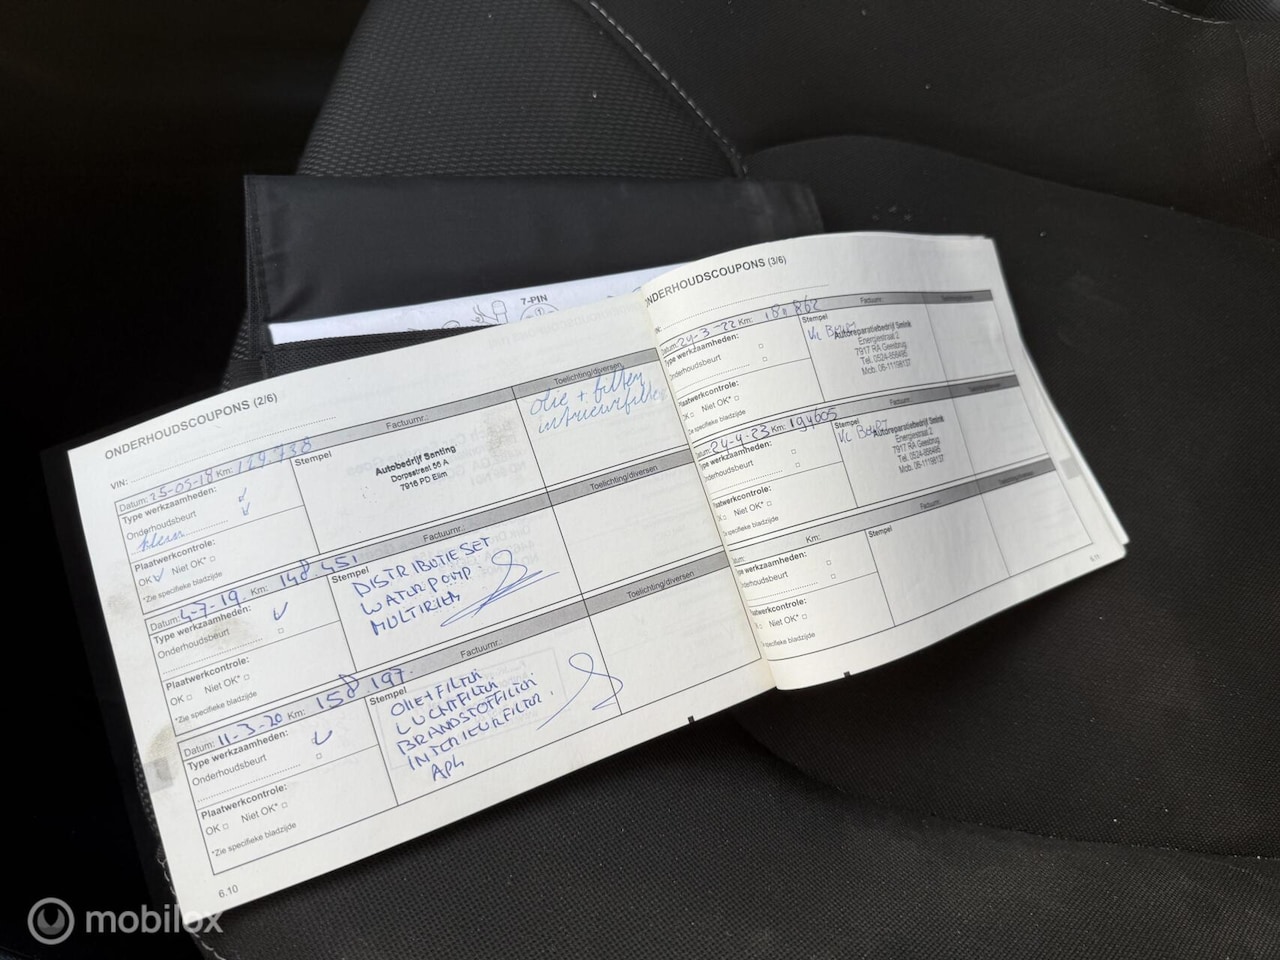 7-PIN
ONDERHOUDSCOUPONS (2/6)
VIN:
Datum: 25-05-18 Km: 129.738
Factuurnr.:
Toelichting/diversen
Type werkzaamheden:
Onderhoudsbeurt
klein
Plaatwerkcontrole:
OK Niet OK*
*Zie specifieke bladzijde
Stempel
Autobedrijf Senting
Dorpsstraat 56 A
7916 PD Elim
olie + filter
interieurfilter
Datum: 4-7-19 Km: 148 451
Factuurnr.:
Toelichting/diversen
Type werkzaamheden:
Onderhoudsbeurt
Plaatwerkcontrole:
OK Niet OK*
*Zie specifieke bladzijde
Stempel
DISTRIBUTIESET
WATERPOMP
MULTIRIEM
Datum: 11-3-20 Km: 158 197
Factuurnr.:
Toelichting/diversen
Type werkzaamheden:
Onderhoudsbeurt
Plaatwerkcontrole:
OK Niet OK*
*Zie specifieke bladzijde
Stempel
OLIE+FILTER
LUCHTFILTER
BRANDSTOFFILTER
INTERIEURFILTER
APK
6.10
ONDERHOUDSCOUPONS (3/6)
Datum: 24-3-22 Km: 180 862
Factuurnr.
Type werkzaamheden:
Onderhoudsbeurt
Plaatwerkcontrole:
Niet OK*
specifieke bladzijde
Stempel
Autoreparatiebedrijf Smink
Energiestraat 2
7917 RA Geesbrug
Tel. 0524-858495
Mob. 06-11198137
Datum: 24-4-23 Km: 194605
Type werkzaamheden:
Onderhoudsbeurt
Plaatwerkcontrole:
Niet OK*
specifieke bladzijde
Stempel
Autoreparatiebedrijf Smink
Energiestraat 2
7917 RA Geesbrug
Tel. 0524-858495
Mob. 06-11198137
Datum: Km:
Factuurnr.:
Type werkzaamheden:
Onderhoudsbeurt
Plaatwerkcontrole:
Niet OK*
specifieke bladzijde
Stempel
6.11
mobilox